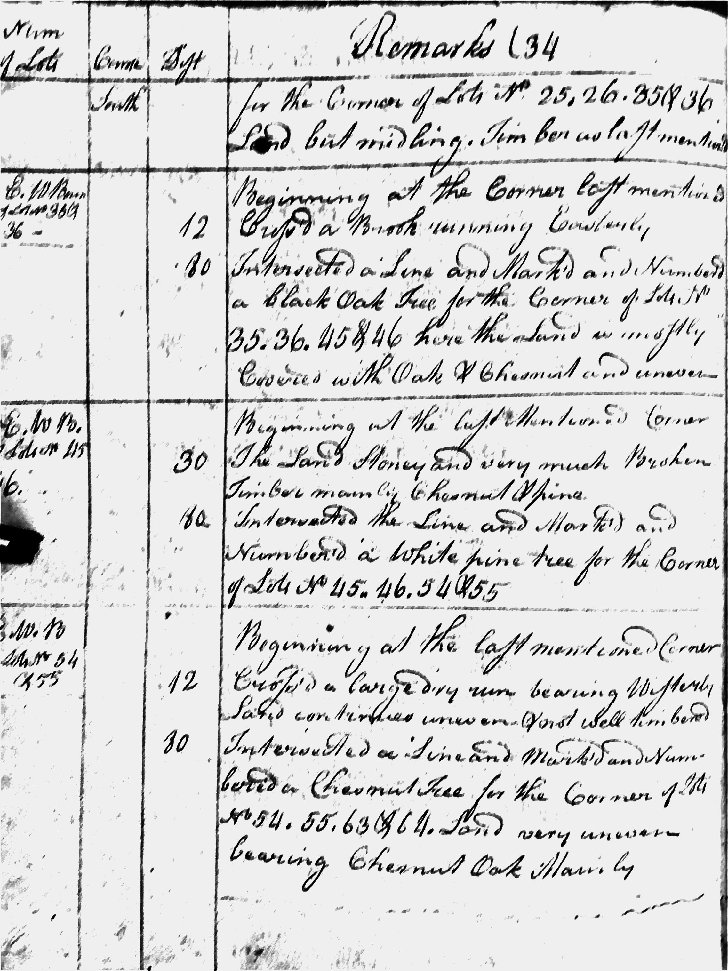 Num
of Lots Course Dist Remarks (34
South for the Corner of Lots No. 25, 26. 35 & 36
Land but midling. Timber as last mention'd
E. W Boun
of Lots No 35 &
36
Beginning at the Corner last mention'd
12 Cross'd a Brook running Easterly
80 Intersected a Line and Mark'd and Number'd
a black Oak Tree for the Corner of Lots No
35. 36. 45 & 46 here the Land is mostly
Covered with Oak & Chesnut and uneven
E. W B.
Lots No 45
46.
Beginning at the last Mentioned Corner
30 The Land Stoney and very much Broken
Timber mainly Chesnut & pine
80 Intersected the Line and Mark'd and
Number'd a White pine tree for the Corner
of Lots No 45. 46. 54 & 55
W. B
Lots No 54
& 55
Beginning at the last mentioned Corner
12 Cross'd a large dry run bearing Westerly
Land continues uneven & not well timbered
80 Intersected a Line and Mark'd and Num-
bered a Chesnut Tree for the Corner of Lots
No 54. 55. 63 & 64. Land very uneven
bearing Chesnut Oak Mainly